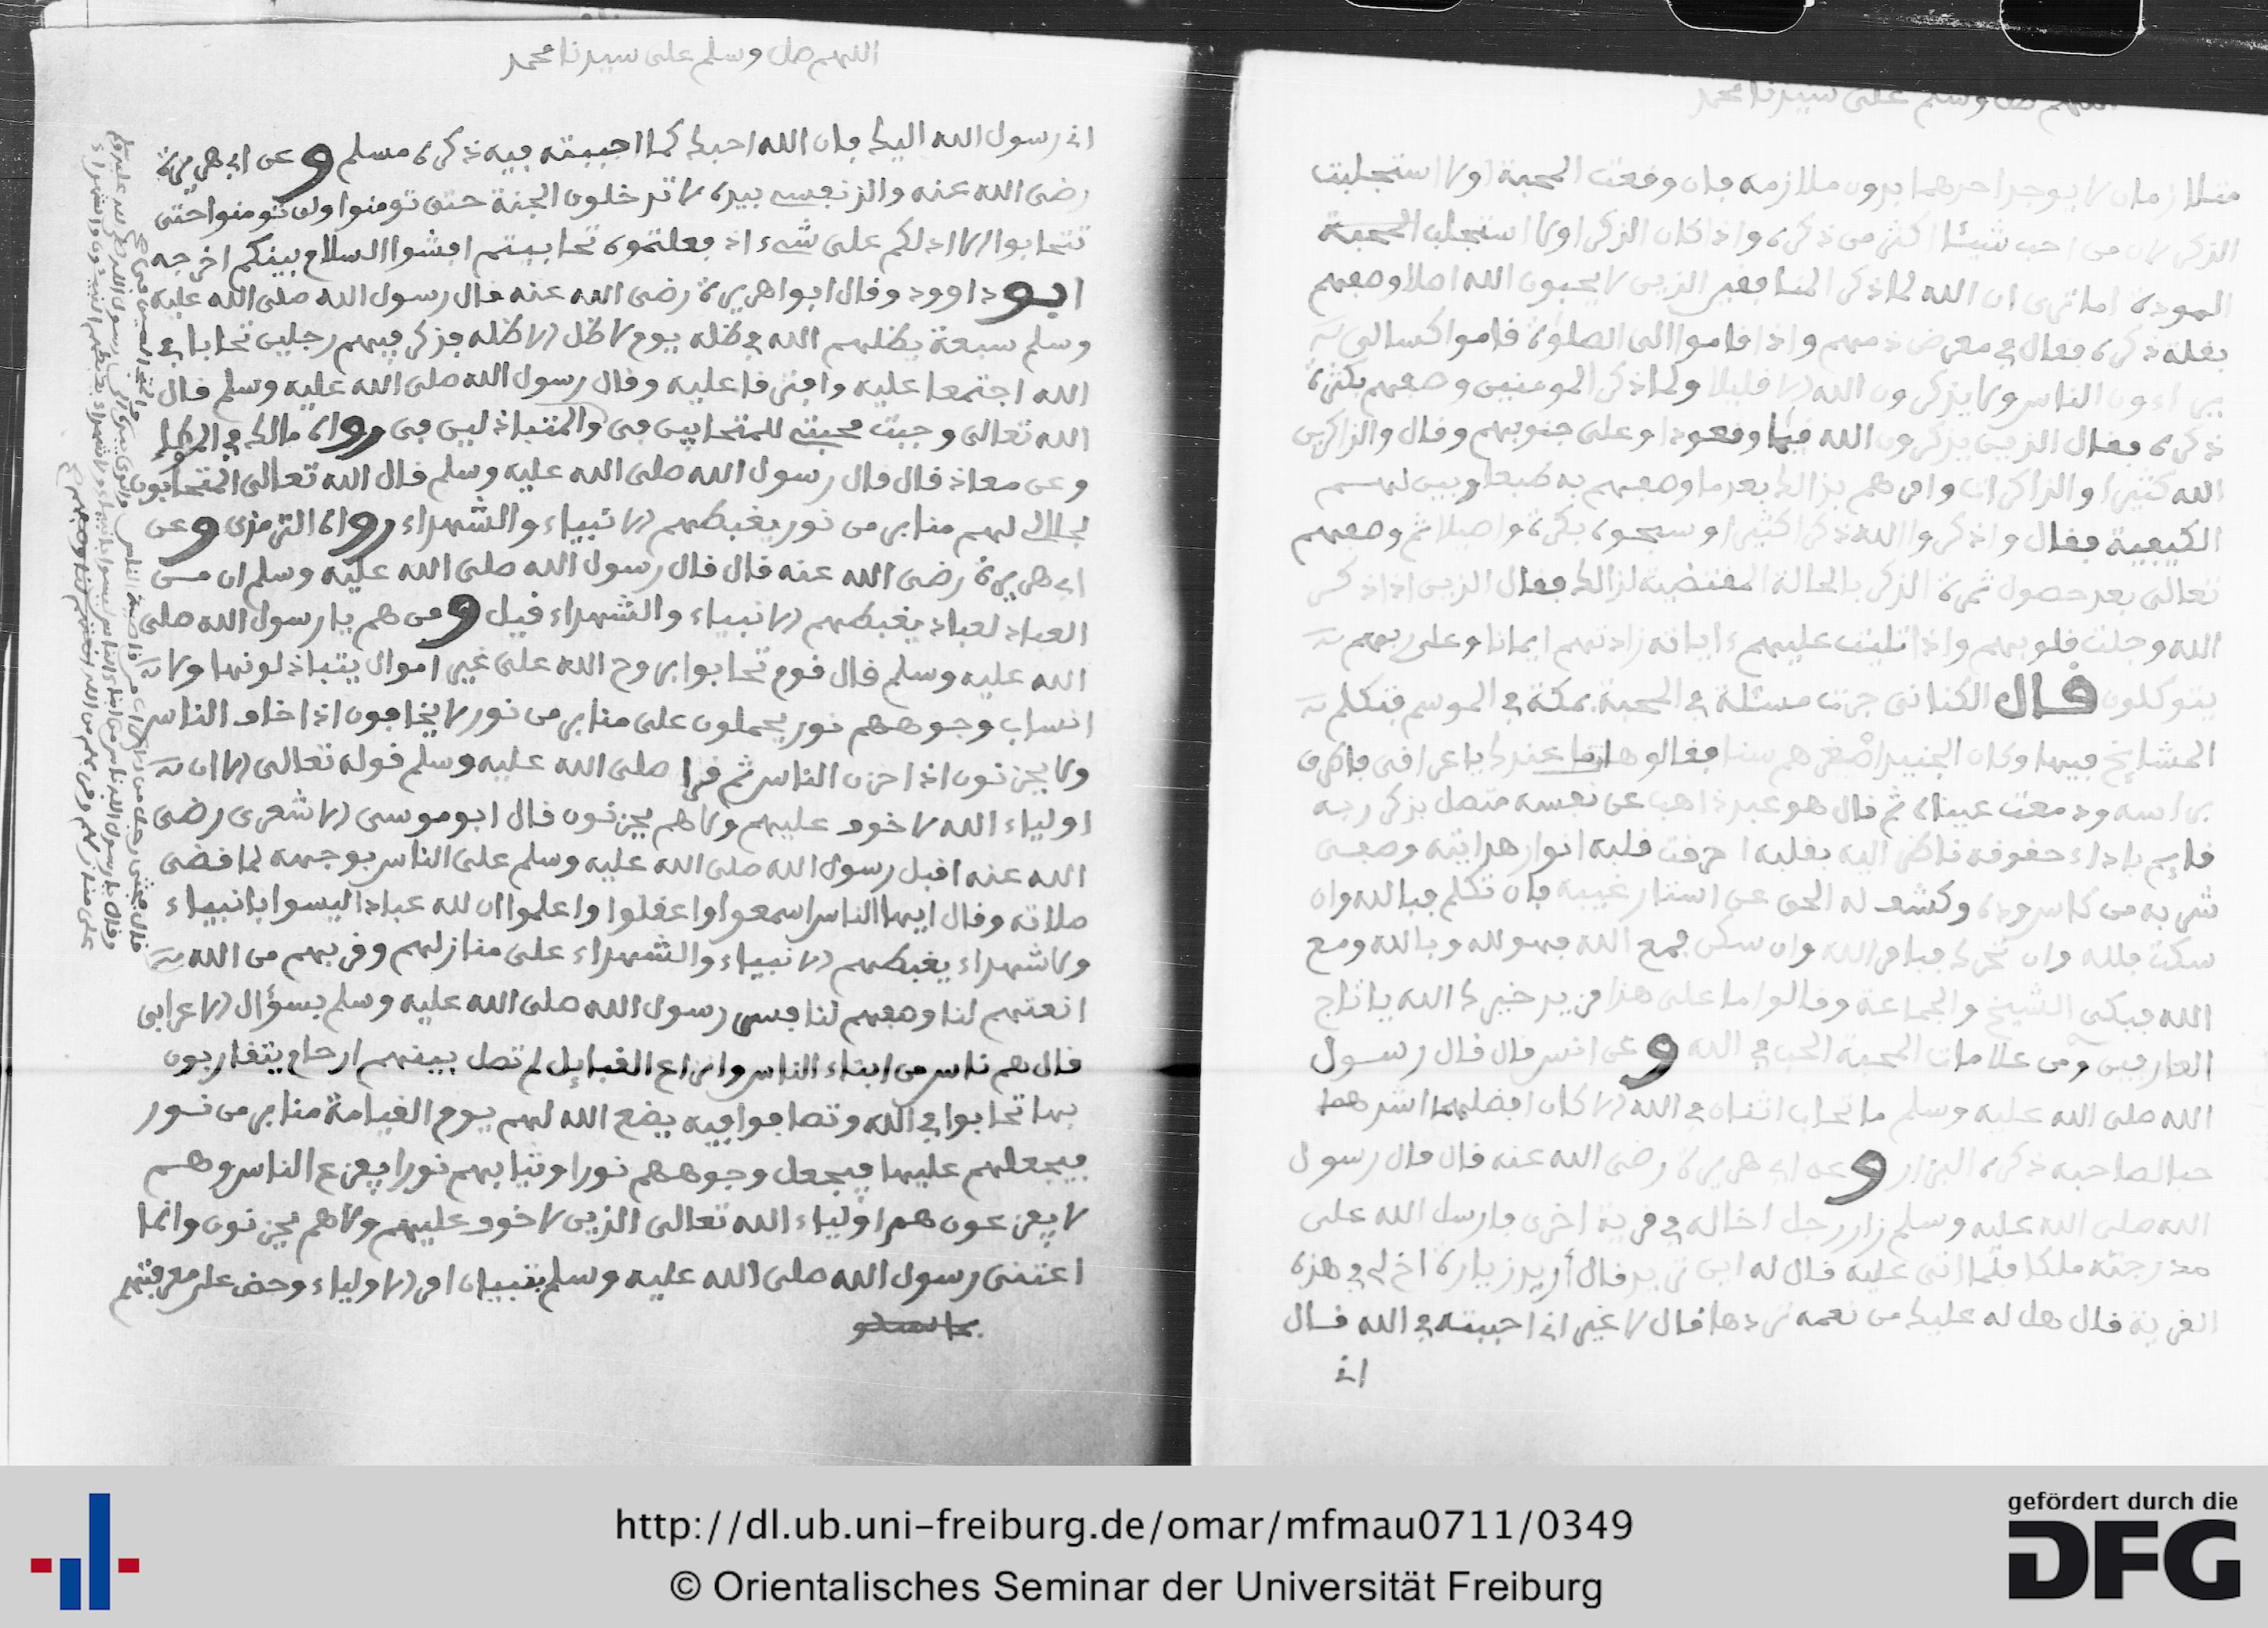 اللهم صل وسلم على سيدنا محمد
متلازمان لا يوجد احدهما بدون ملازمه فان وقعت المحبة اولا استجلبت
الذكر لان من احب شيئا اكثر من ذكره واذا كان الذكر اولا استجلب المحبة
المودة اما ترى ان الله لما ذكر المنافقين الذين لا يحبون الله اصلا وصفهم
بقلة ذكره فقال في معرض ذمهم واذا قاموا الى الصلوة قاموا كسالى
يراءون الناس ولا يذكرون الله الا قليلا ولما ذكر المومنين وصفهم بكثرة
ذكره فقال الذين يذكرون الله قيما وقعودا وعلى جنوبهم وقال والذاكرين
الله كثيرا والذاكرات وامرهم بذالك بعد ما وصفهم به طبعا وبين لهم
الكيفية فقال واذكروا الله ذكرا كثيرا وسبحوه بكرة واصيلا ثم وصفهم
تعالى بعد حصول ثمرة الذكر بالحالة المقتضية لذالك فقال الذين اذا ذكر
الله وجلت قلوبهم واذا تليت عليهم ءاياته زادتهم ايمانا وعلى ربهم
يتوكلون قال الكنانى جرت مسئلة في المحبة بمكة في الموسم فتكلم
المشايخ فيها وكان الجنيد اصغرهم سنا فقالو هات ما عندك يا عراقى فاطرق
راسه ودمعت عيناه ثم قال هو عبد ذاهب عن نفسه متصل بذكر ربه
قايم باداء حقوقه ناظر اليه بقلبه احرقت قلبه انوار هدايته وصفى
شربه من كاس وده وكشف له الحق عن استار غيبه فان تكلم فبالله وان
سكت فلله وان تحرك فبامر الله وان سكن فمع الله فهو لله وبالله ومع
الله فبكى الشيخ والجماعة وقالوا ما على هذا مزيد خيرك الله يا تاج
العارفين ومن علامات المحبة الحب في الله وعن انس قال قال رسول
الله صلى الله عليه وسلم ما تحاب اثنان في الله الا كان افضلهما اشدهما
حبا لصاحبه ذكره البزار وعن ابي هريرة رضى الله عنه قال قال رسول
الله صلى الله عليه وسلم زار رجل اخا له في قرية اخرى فارسل الله على
مدرجته ملكا فلما اتى عليه قال له اين تريد قال أريد زيارة اخ لي في هذه
القرية قال هل له عليك من نعمه تردها قال لا غير اني احببته في الله قال
اني
اللهم صل وسلم على سيدنا محمد
اني رسول الله اليك فان الله احبك كما احببته فيه ذكره مسلم وعن ابي هريرة
رضى الله عنه والذ نفسي بيده لا تدخلون الجنة حتى تومنوا ولن تومنوا حتى
تتحابوا الا ادلكم على شيء اذ فعلتموه تحاببتم افشوا السلام بينكم اخرجه
ابو داوود وقال ابوا هريرة رضى الله عنه قال رسول الله صلى الله عليه
وسلم سبعة يظلهم الله في ظله يوم لا ظل الا ظله فذكر فيهم رجلين تحابا في
الله اجتمعا عليه وافترقا عليه وقال رسول الله صلى الله عليه وسلم قال
الله تعالى وجبت محبتي للمتحابين في والمتباذلين في رواه مالك في الموطإ
وعن معاذ قال قال رسول الله صلى الله عليه وسلم قال الله تعالى المتحابون
لجلالي لهم منابر من نور يغبطهم الانبياء والشهداء رواه الترمذى وعن
ابي هريرة رضى الله عنه قال قال رسول الله صلى الله عليه وسلم ان من
العباد لعباد يغبطهم الانبياء والشهداء قيل ومن هم يا رسول الله صلى
الله عليه وسلم قال قوم تحابوا بروح الله على غير اموال يتباذلونها ولا
انساب وجوههم نور يحملون على منابر من نور لا يخافون اذا خاف الناس
ولا يحزنون اذا حزن الناس ثم قرا صلى الله عليه وسلم قوله تعالى الا ان
اولياء الله لا خوف عليهم ولا هم يحزنون قال ابو موسى الاشعرى رضى
الله عنه اقبل رسول الله صلى الله عليه وسلم على الناس بوجهه لما قضى
صلاته وقال ايها الناس اسمعوا واعقلوا واعلموا ان لله عبادا ليسوا بانبياء
ولا شهداء يغبطهم الانبياء والشهداء على منازلهم وقربهم من الله
انعتهم لنا وصفهم لنا فسر رسول الله صلى الله عليه وسلم بسؤال الاعرابى
قال هم ناس من ابناء الناس وانزاع القبايل لم تصل بينهم ارحام يتقاربون
بها تحابوا في الله وتصافوا فيه يضع الله لهم يوم القيامة منابر من نور
فيجعلهم عليها فيجعل وجوههم نورا وثيابهم نورا يفزع الناس وهم
لا يفزعون هم اولياء الله تعالى الذين لا خوف عليهم ولا هم يحزنون وانما
اعتنى رسول الله صلى الله عليه وسلم بتبيان امر الاولياء وحض على معرفتهم
http://dl.ub.uni-freiburg.de/omar/mfmau0711/0349
© Orientalisches Seminar der Universität Freiburg
gefördert durch die
DFG